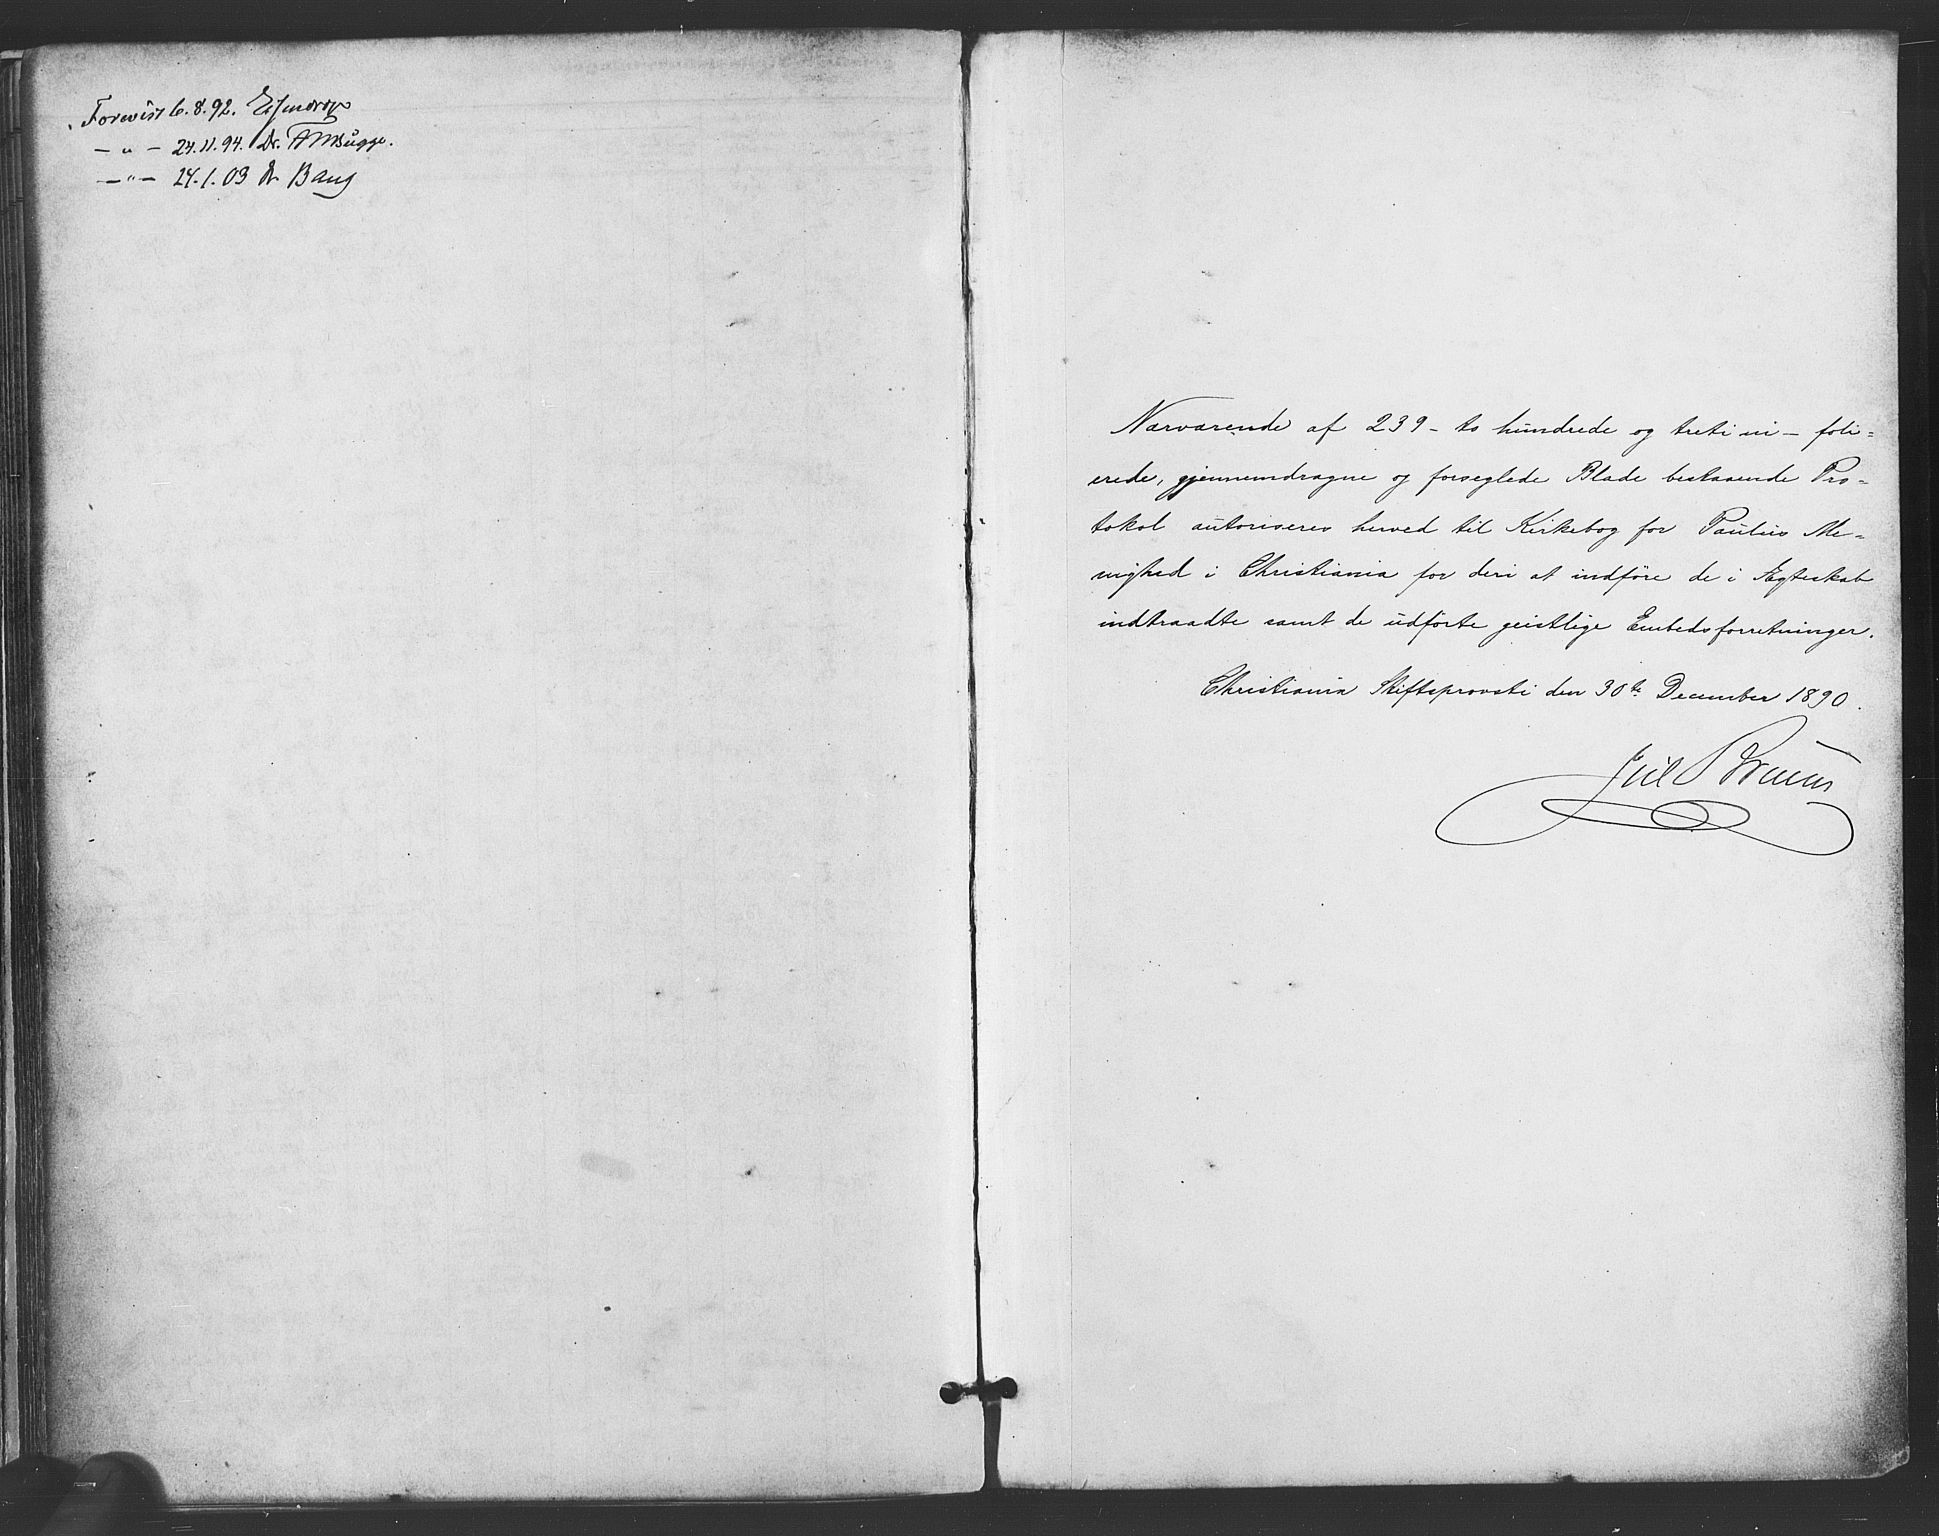 Forevist 6.8.92.
— " — 24.11.94. Dr. Bugge.
— " — 24.1.03 Dr Bang
Nærværende af 239 – to hundrede og treti ni – foli=
erede, gjennemdragne og forseglede Blade bestaaende Pro=
tokol autoriseres herved til Kirkebog for Paulus Me=
nighed i Christiania for deri at indføre de i Ægteskab
indtraadte samt de udførte geistlige Embedsforretninger.
Christiania Stiftsprovsti den 30te December 1890.